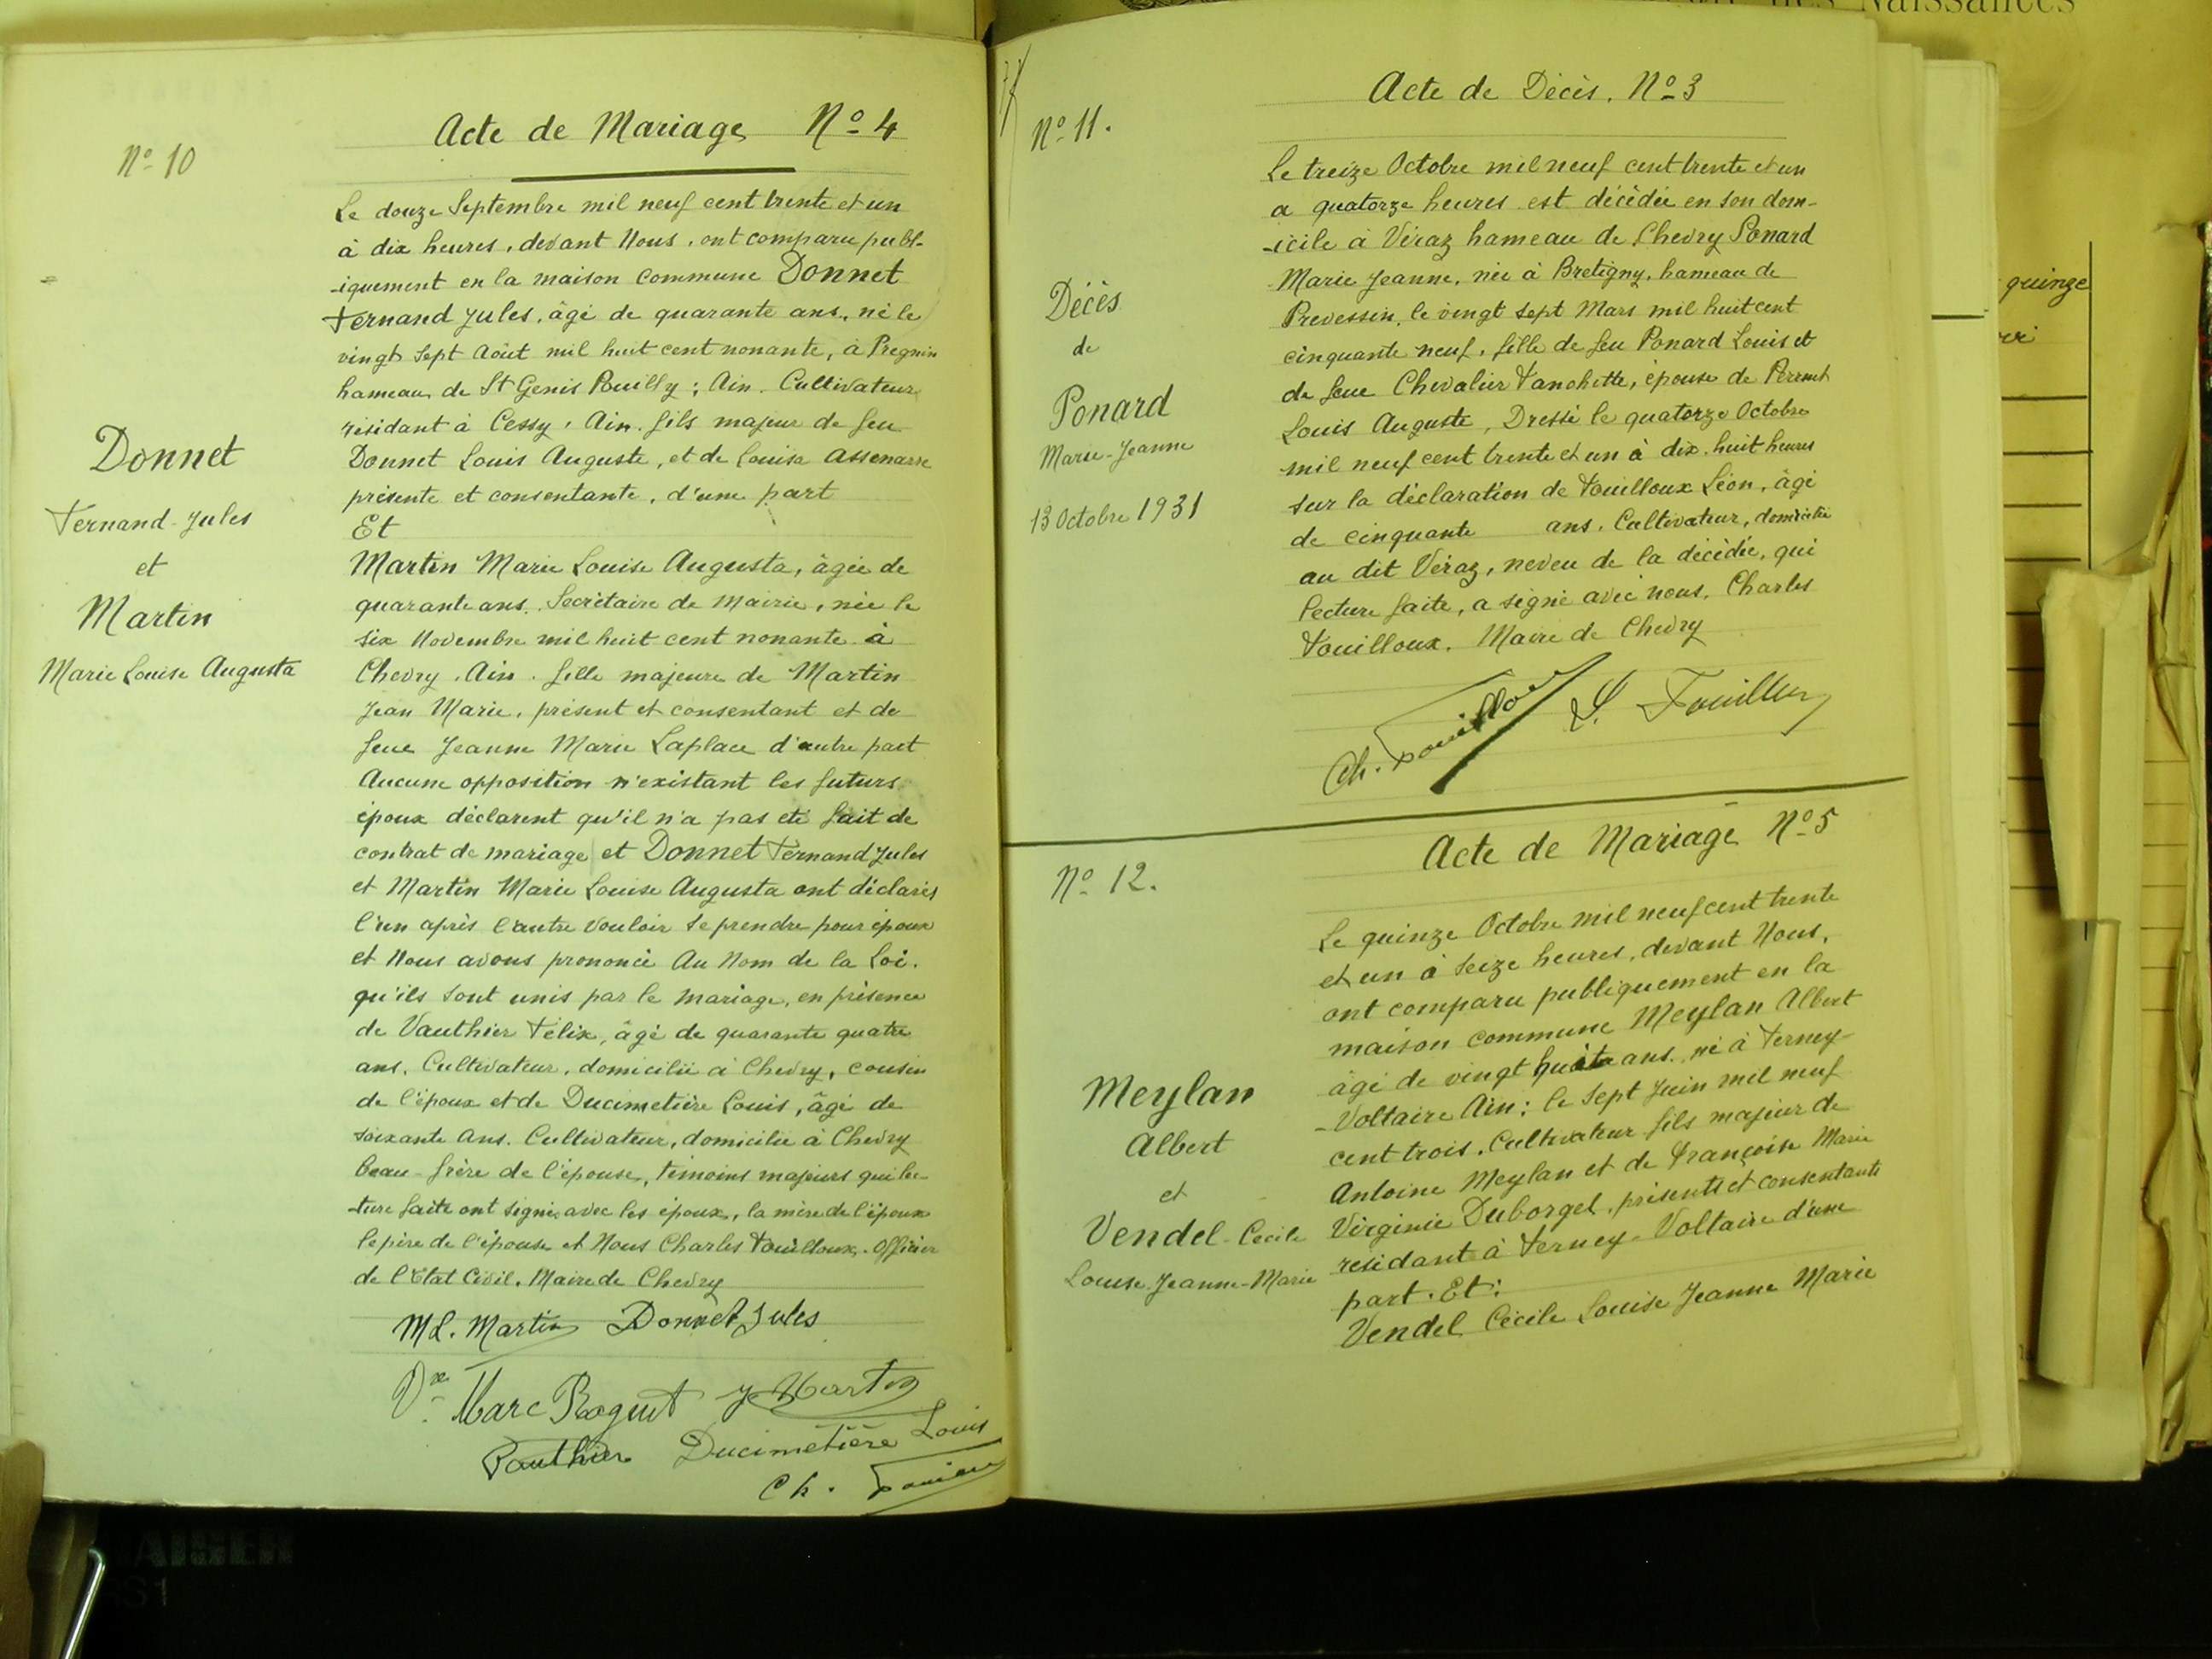 Acte de Mariage Nº 4
Nº 10
Le douze Septembre mil neuf cent trente et un
à dix heures, devant Nous, ont comparu publ-
-iquement en la maison commune Donnet
Fernand Jules, âgé de quarante ans, né le
vingt Sept Août mil huit cent nonante, à Pregnin
hameau de St Genis Pouilly ; Ain. Cultivateur
résidant à Cessy, Ain. fils majeur de feu
Donnet Louis Auguste, et de Louise
présente et consentante, d'une part
Et
Martin Marie Louise Augusta, âgée de
quarante ans, Secrétaire de Mairie, née le
six Novembre mil huit cent nonante à
Chevry. Ain. fille majeure de Martin
Jean Marie, présent et consentant et de
feue Jeanne Marie Laplace d'autre part
Aucune opposition n'existant les futurs
époux déclarent qu'il n'a pas eté fait de
contrat de mariage et Donnet Fernand Jules
et Martin Marie Louise Augusta ont déclarés
l'un après l'autre vouloir se prendre pour époux
et Nous avons prononcé Au Nom de la Loi.
qu'ils sont unis par le mariage, en présence
de Vauthier Félix, âgé de quarante quatre
ans, Cultivateur, domicilié à Chevry, cousin
de l'époux et de Ducimetière Louis, âgé de
soixante ans. Cultivateur, domicilié à Chevry
beau-frère de l'épouse, témoins majeurs qui lec-
-ture faite ont signé avec les époux, la mère de l'époux
le père de l'épouse et Nous Charles Fouilloux. Officier
de l'Etat Civil. Maire de Chevry
Donnet
Fernand-Jules
et
Martin
Marie Louise Augusta
M L. Martin Donnet Jules
Vve Marc Roguet J Martin
Vauthier Ducimetière Louis
Ch.
Acte de Décès. Nº 3
Nº 11.
Le treize Octobre mil neuf cent trente et un
a quatorze heures est décédée en son dom-
-icile à Véraz hameau de Chevry Ponard
Marie Jeanne, née à Bretigny, hameau de
Prevessin, le vingt sept Mars mil huit cent
cinquante neuf, fille de feu Ponard Louis et
de feue Chevalier Fanchette, épouse de Perret
Louis Auguste, Dressé le quatorze Octobre
mil neuf cent trente et un à dix huit heures
sur la déclaration de Fouilloux Léon, âgé
de cinquante ans. Cultivateur, domicilié
au dit Véraz, neveu de la décédée, qui
lecture faite, a signé avec nous, Charles
Fouilloux. Maire de Chevry
Décès
de
Ponard
Marie-Jeanne
13 Octobre 1931
Ch. Fouilloux L. Fouilloux
Acte de Mariage Nº 5
Nº 12.
Le quinze Octobre mil neuf cent trente
et un à seize heures, devant Nous,
ont comparu publiquement en la
maison commune Meylan Albert
âgé de vingt huit ans, né à Ferney-
-Voltaire Ain ; le sept Juin mil neuf
cent trois. Cultivateur fils majeur de
Antoine Meylan et de Françoise Marie
Virginie Duborgel, présents et consentants
résidant à Ferney-Voltaire d'une
part. Et :
Vendel Cécile Louise Jeanne Marie
Meylan
Albert
et
Vendel-Cécile
Louise-Jeanne-Marie
des Naissances
quinze